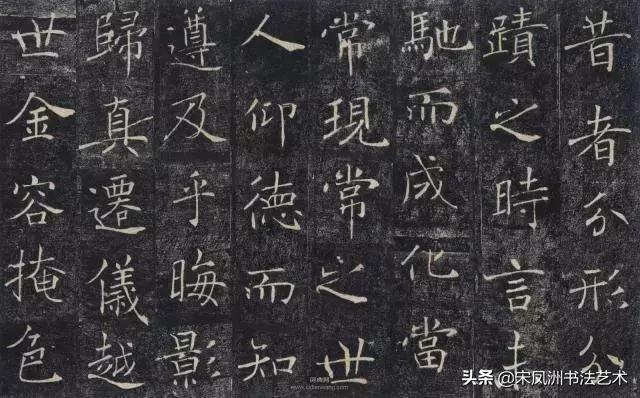 昔者分形分
蹟之時言未
馳而成化當
常現常之世
人仰德而知
遵及乎晦影
歸真遷儀越
世金容掩色
词典网
www.cidianwang.com
头条 @宋凤洲书法艺术